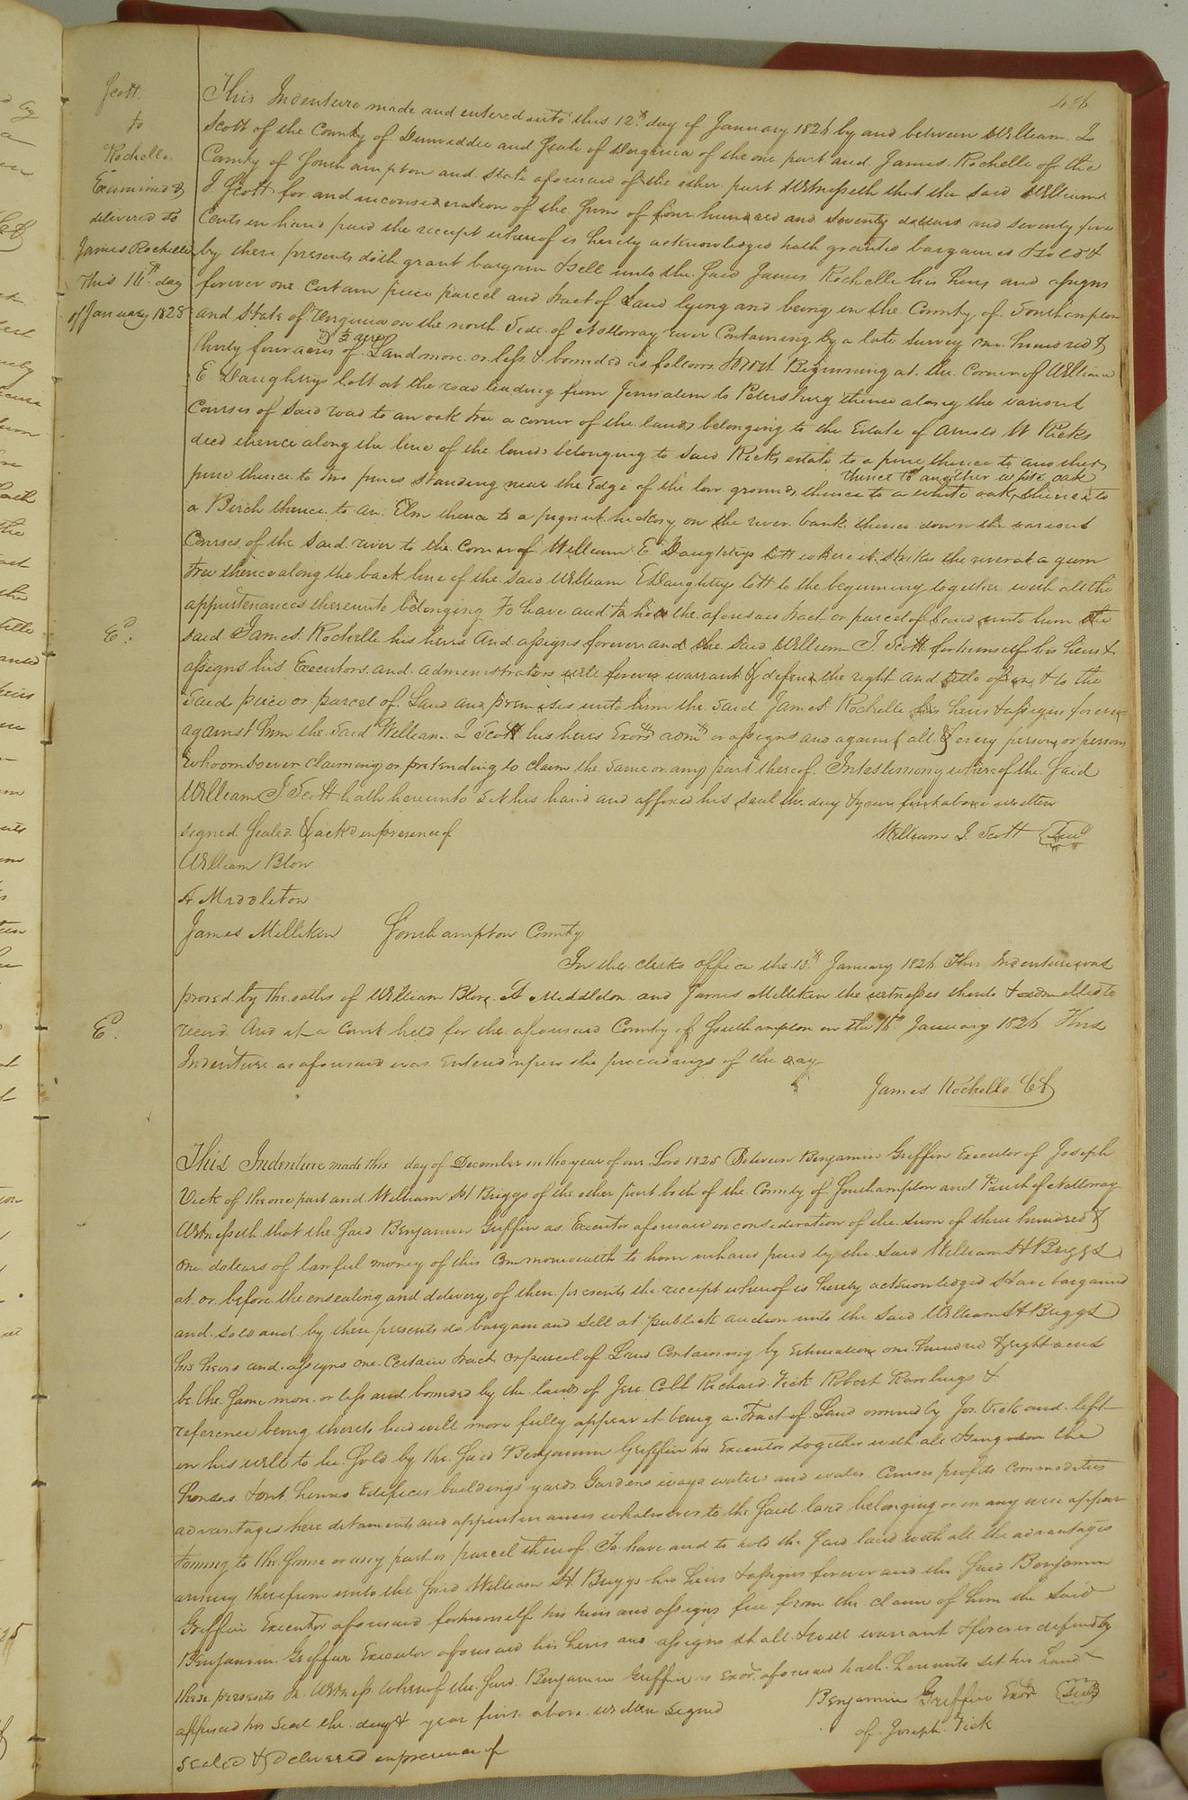 Scott
to
Rochelle
Examined &
delivered to
James Rochelle
this 16th day
of January 1828
This Indenture made and entered into this 12th day of January 1826 by and between William J
Scott of the County of Dinwiddie and State of Virginia of the one part and James Rochelle of the
County of Southampton and State aforesaid of the other part Witnesseth that the said William
J Scott for and in consideration of the sum of four hundred and seventy dollars and seventy five
Cents in hand paid the receipt whereof is hereby acknowledged hath granted bargained & sold &
by these presents doth grant bargain & sell unto the said James Rochelle his heirs and assigns
forever one certain piece parcel and tract of Land lying and being in the County of Southampton
and State of Virginia on the north side of Nottoway river Containing by a late survey one hundred &
thirty four acres of Land more or less & bounded as follows Beginning at the Corner of William
E Daughtrys lott at the road leading from Jerusalem to Petersburg thence along the various
Courses of said road to an oak tree a corner of the lands belonging to the Estate of Arnold W Ricks
decd thence along the line of the lands belonging to said Ricks estate to a pine thence to another
pine thence to two pines standing near the Edge of the low grounds thence to a white oak thence to another white oak thence to
a Birch thence to an Elm thence to a pignut hickory on the river bank thence down the various
Courses of the said river to the Corner of William E Daughtrys lott where it strikes the river at a gum
tree thence along the back line of the said William E Daughtrys lott to the beginning together with all the
appurtenances thereunto belonging To have and to hold the aforesaid tract or parcel of land unto him the
Ed.
said James Rochelle his heirs and assigns forever and the said William J. Scott for himself his heirs &
assigns his Executors and administrators will forever warrant & defend the right and title of in & to the
said piece or parcel of Land and premises unto him the said James Rochelle his heirs & assigns forever
against him the said William J Scott his heirs Exors adms or assigns and against all & every person or persons
whoomsoever claiming or pretending to claim the same or any part thereof. In testimony whereof the said
William J Scott hath hereunto set his hand and affixed his seal the day & year first above written
signed Sealed & ackd in presence of
William J. Scott Seal
William Blow
A Middleton
James Milliken
Southampton County
In the clerks office the 13th January 1826 This Indenture was
proved by the oaths of William Blow, A Middleton and James Milliken the witnesses thereto & admitted to
Ed.
record And at a Court held for the aforesaid County of Southampton on the 16th January 1826 This
Indenture as aforesaid was entered upon the proceedings of the day
James Rochelle
This Indenture made this day of December in the year of our Lord 1825 Between Benjamin Griffin Executor of Joseph
Vick of the one part and William H Briggs of the other part both of the County of Southampton and Parish of Nottoway
Witnesseth that the said Benjamin Griffin as Executor aforesaid in consideration of the sum of three hundred &
one dollars of lawful money of this Commonwealth to him in hand paid by the said William H Briggs
at or before the ensealing and delivery of these presents the receipt whereof is hereby acknowledged Have bargained
and sold and by these presents do bargain and sell at publick auction unto the said William H Briggs
his heirs and assigns one Certain tract or parcel of Land Containing by Estimation one hundred & eight acres
be the same more or less and bounded by the lands of Jere Cobb Richard Vick Robert Rawlings &
reference being thereto had will more fully appear it being a Tract of Land owned by Jos. Vick and left
in his will to be sold by the said Benjamin Griffin his Executor together with all
houses Edifices buildings yards Gardens ways waters and water Courses profits commodities
advantages hereditaments and appurtenances whatsoever to the said land belonging or in any wise apper-
taining to the same or any part or parcel thereof To have and to hold the said land with all the advantages
arising therefrom unto the said William H. Briggs his heirs & assigns forever and the said Benjamin
Griffin Executor aforesaid for himself his heirs and assigns free from the claim of him the said
Benjamin Griffin Executor aforesaid his heirs and assigns shall & will warrant & forever defend by
these presents In Witness whereof the said Benjamin Griffin as Exor aforesaid hath hereunto set his hand
affixed his seal the day & year first above written signed
Benjamin Griffin Exor Seal
of Joseph Vick
sealed & delivered in presence of